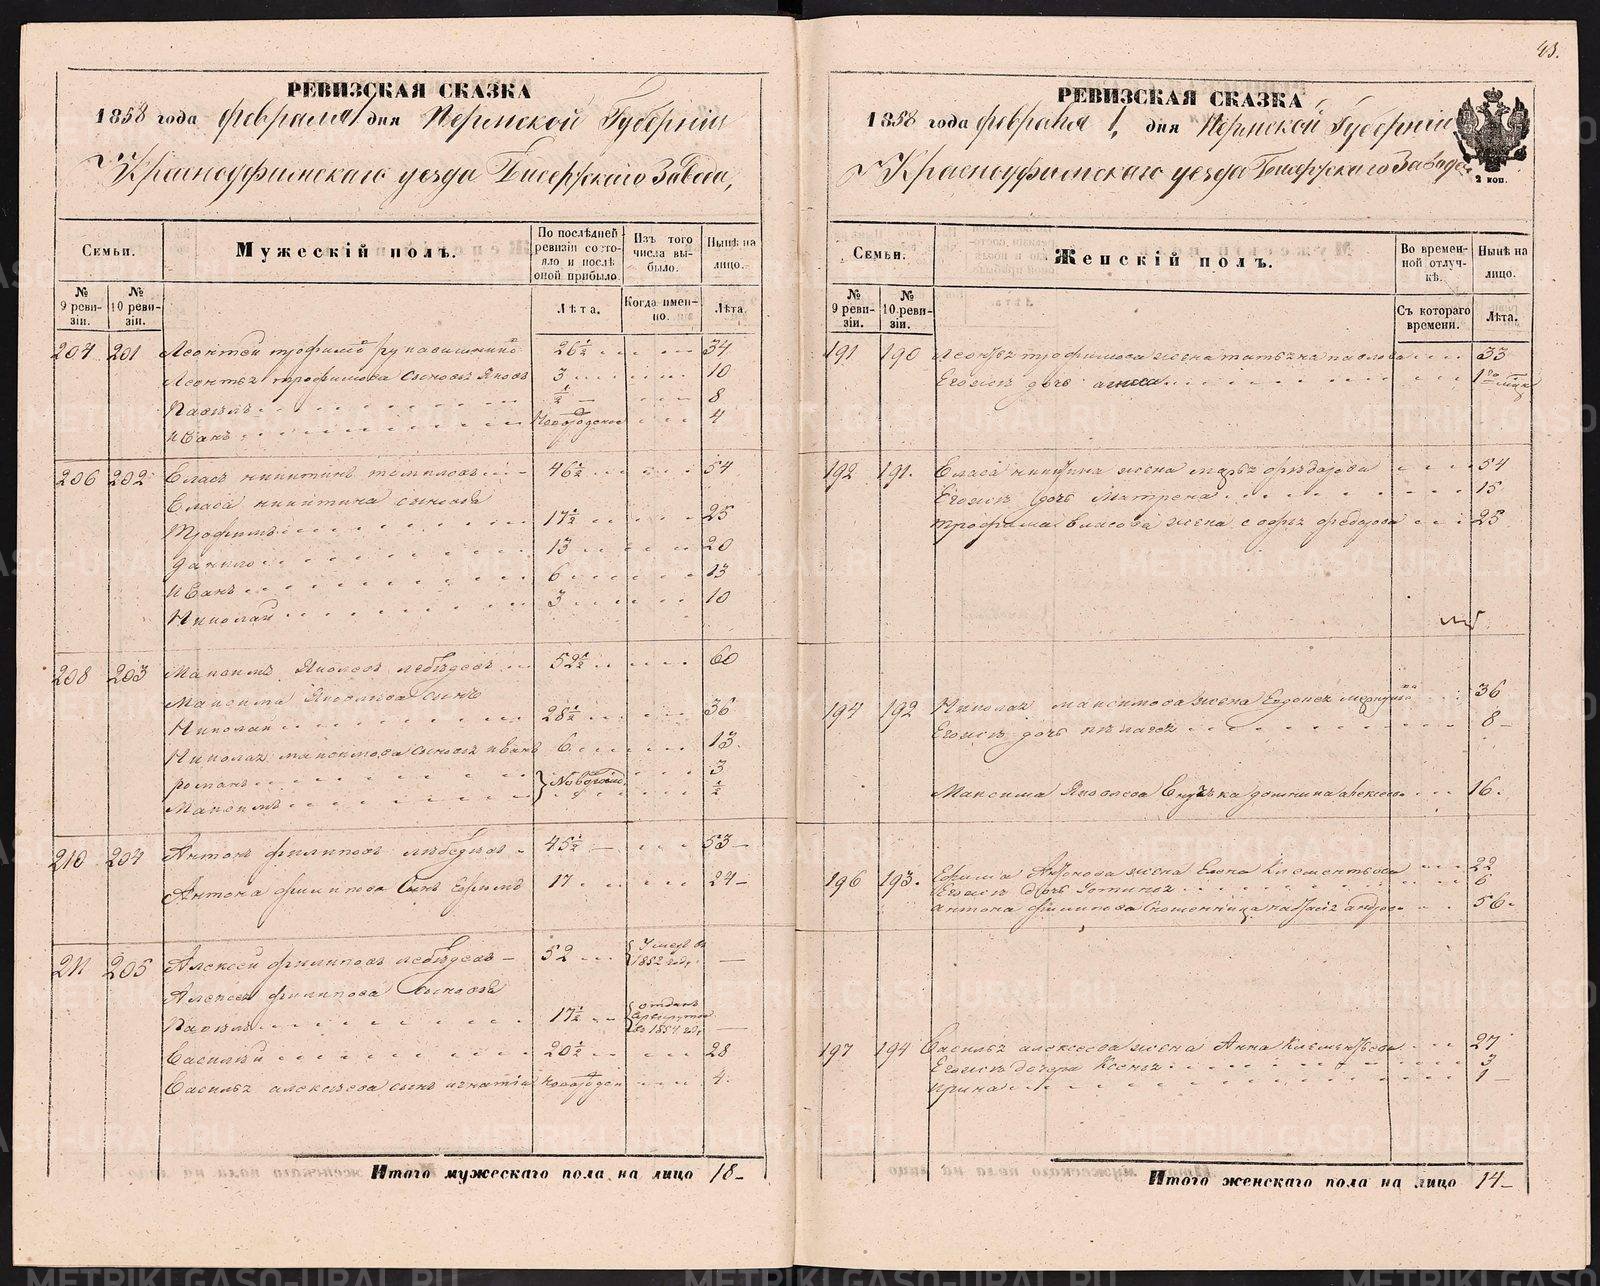 43.
РЕВИЗСКАЯ СКАЗКА
1858 года февраля 1 дня Пермской Губерніи
Красноуфимскаго уезда Бисерскаго Завода,
Семьи.
Мужескій полъ.
По послѣдней ревизіи состояло и послѣ оной прибыло.
Изъ того числа выбыло.
Нынѣ на лицо.
№ 9 ревизіи.
№ 10 ревизіи.
Лѣта.
Когда именно.
Лѣта.
204 201 Леонтей трофимо 26½ 34
Леонтья трофимова сыновья Яковъ 3 10
Павелъ ½ 8
Иванъ новорожден 4
206 202 Власъ никитинъ 46½ 54
Власа никитина сыновья
Трофимъ 17½ 25
данило 13 20
Иванъ 6 13
Николай 3 10
208 203 Максимъ Яковлевъ лебедевъ 52½ 60
Максима Яковлева сынъ
Николай 28½ 36
Николая максимова сыновья иванъ 6 13
романъ Новорож 3
Максимъ ½
210 204 Антонъ филиповъ лебедевъ 45½ 53
Антона филипова сынъ Ефимъ 17 24
211 205 Алексей филиповъ лебедевъ 52 Умеръ въ 1852 году —
Алексея филипова сыновья
Павелъ 17½ отданъ в рекруты въ 1854 году —
Василий 20½ 28
Василья алексеева сынъ игнатий новорожден 4
Итого мужескаго пола на лицо 18
РЕВИЗСКАЯ СКАЗКА
1858 года февраля 1, дня Пермской Губерніи
Красноуфимскаго уезда Бисерскаго Завода
2 коп.
Семьи.
Женскій полъ.
Во временной отлучкѣ.
Нынѣ на лицо.
№ 9 ревизіи.
№ 10 ревизіи.
Съ котораго времени.
Лѣта.
191 190 Леонтья трофимова жена татьяна павлова 33
Егожъ дочь
192 191. Власа никитина жена марья 54
Егожъ дочь Матрена 15
трофима власова жена софья федорова 25
194 192 Николая максимова жена Евдокея 36
Егожъ дочь пелагея 8
Максима Яковлева внучка домнина алексеев 16.
196 193. Ефима Антонова жена Елена Клементьева 22
Егожъ дочь Устинья 6
антона филипова настасья андрее 56.
197 194 Василья алексеева жена Анна Клементьева 27
Егожъ дочери Ксенья 3
ирина 1
Итого женскаго пола на лицо 14
METRIKI.GASO-URAL.RU